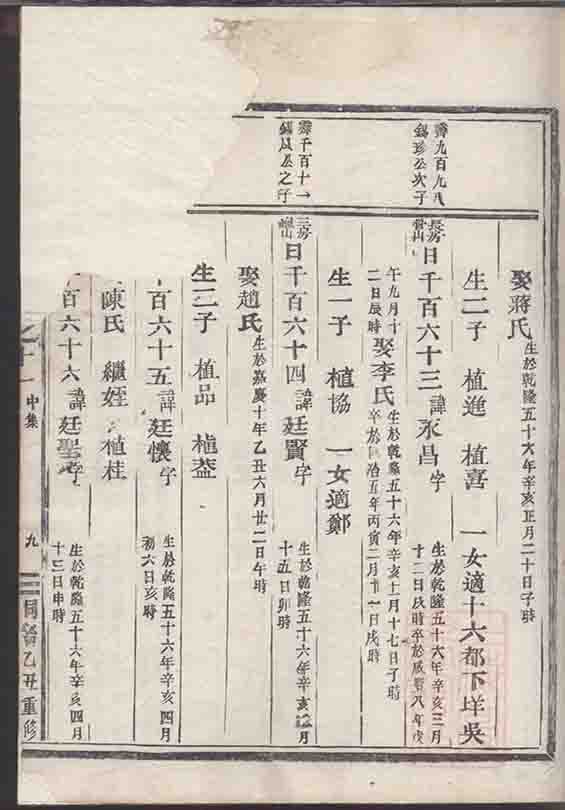 娶蔣氏 生於乾隆五十六年辛亥正月二十日子時
生二子 植進 植喜 一女適十六都下垟吳
壽九百九八
錫珍公次子
長房
日千百六十三 諱永昌 字 生於乾隆五十六年辛亥三月
十二日戌時卒於咸豐八年戊
午九月十
二日辰時
娶李氏 生於乾隆五十六年辛亥十月十七日子時
卒於同治五年丙寅二月十一日戌時
生一子 植協 一女適鄭
壽千百十一
錫 公之子
三房
日千百六十四 諱廷賢 字 生於乾隆五十六年辛亥 月
十五日卯時
娶趙氏 生於嘉慶十年乙丑六月廿二日午時
生二子 植品 植益
百六十五 諱廷懷 字 生於乾隆五十六年辛亥四月
初六日亥時
陳氏 繼姪 植桂
百六十六 諱廷聖 字 生於乾隆五十六年辛亥四月
十三日申時
中集 九 同治乙丑重修